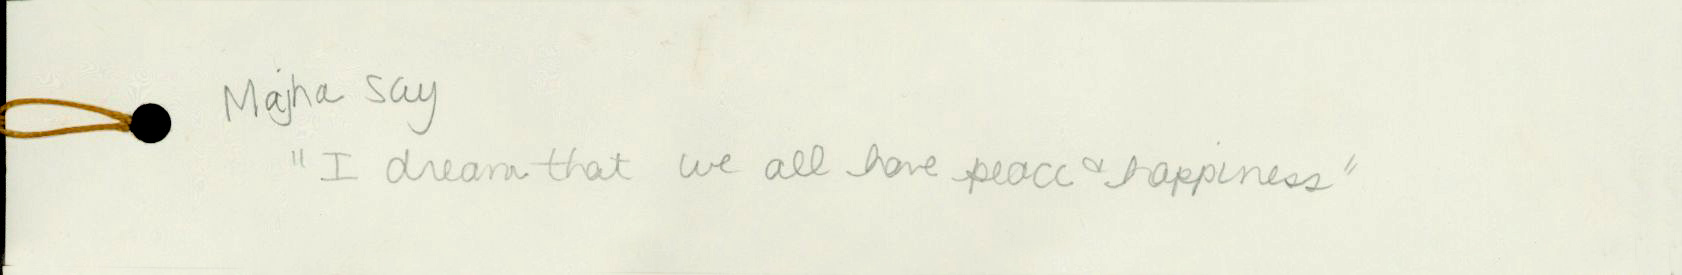 Majha say
"I dream that we all have peace & happiness"